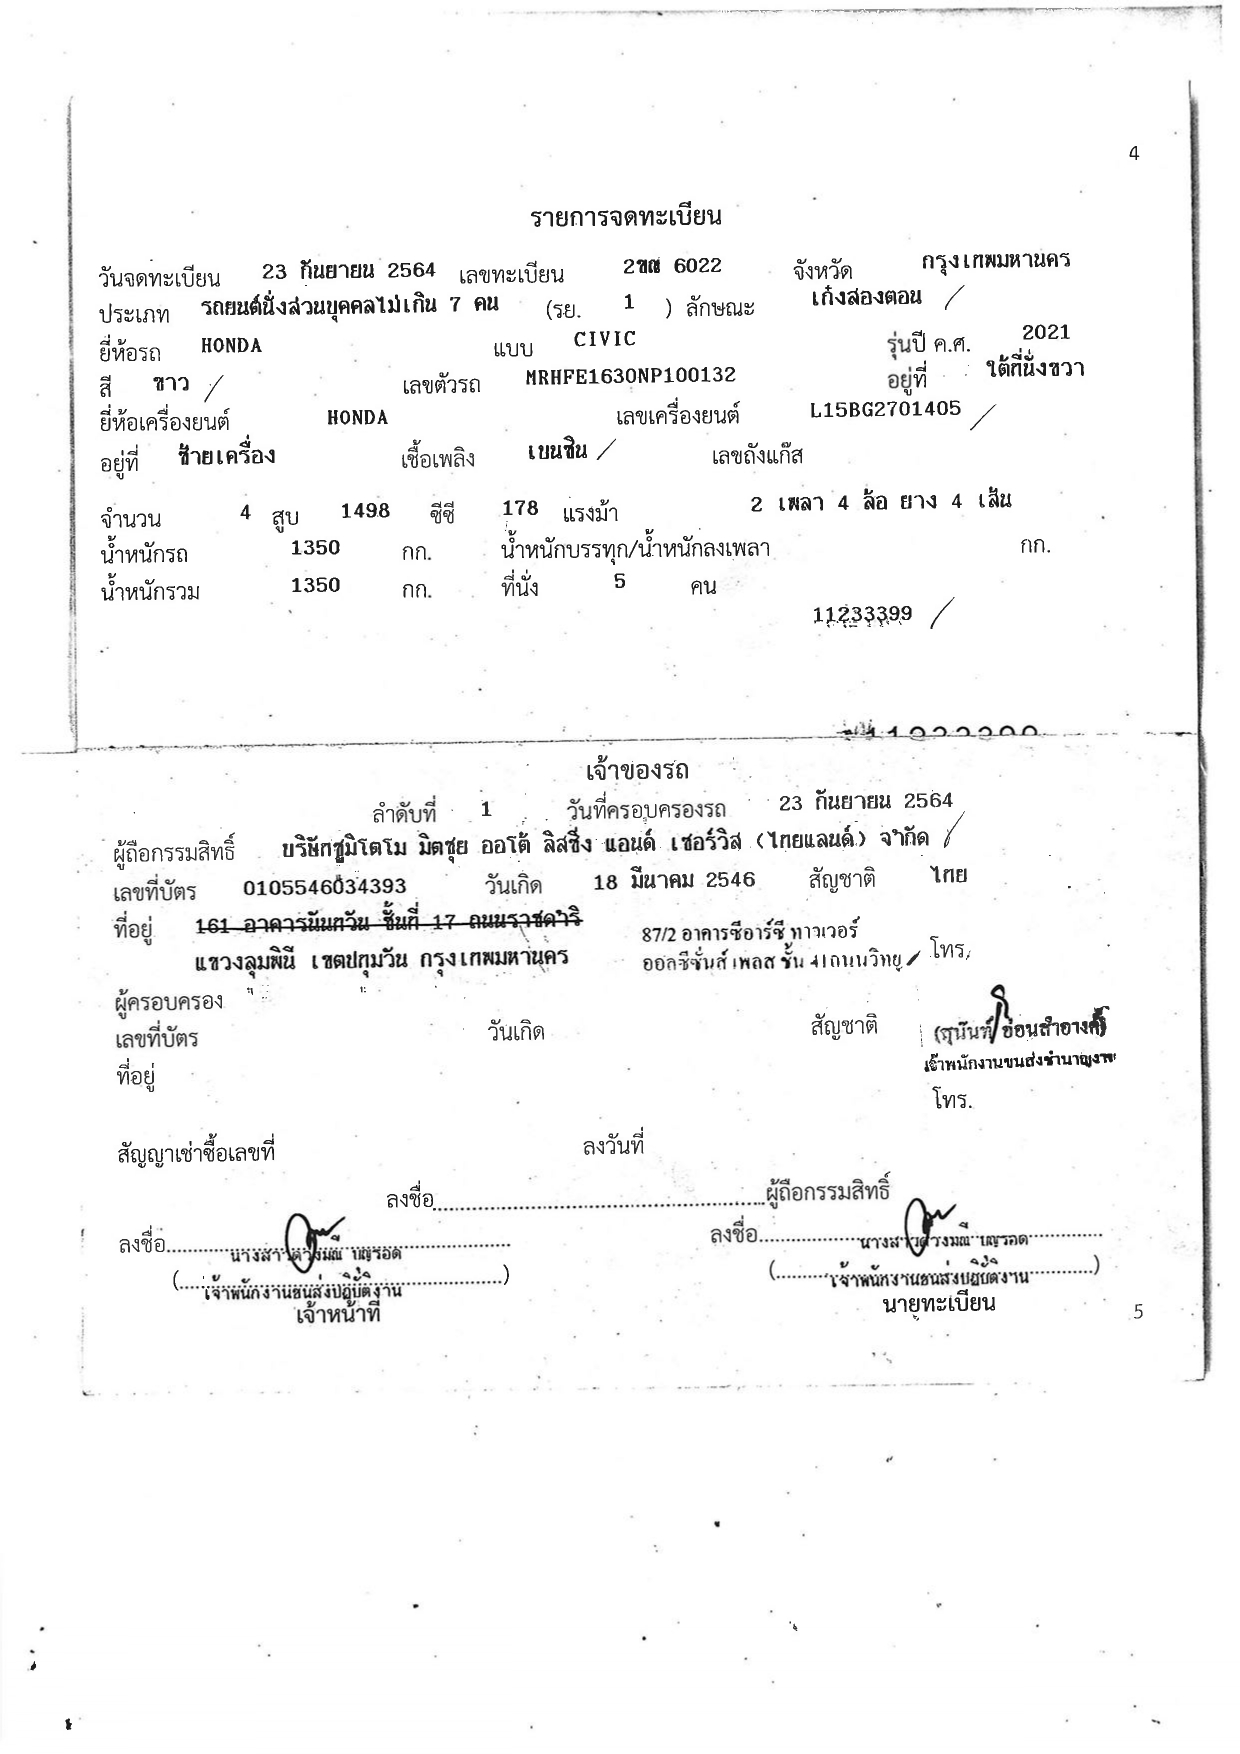 4
รายการจดทะเบียน
วันจดทะเบียน 23 กันยายน 2564 เลขทะเบียน 2ขฌ 6022 จังหวัด กรุงเทพมหานคร
ประเภท รถยนต์นั่งส่วนบุคคลไม่เกิน 7 คน (รย. 1 ) ลักษณะ เก๋งสองตอน
ยี่ห้อรถ HONDA แบบ CIVIC รุ่นปี ค.ศ. 2021
สี ขาว เลขตัวรถ MRHFE1630NP100132 อยู่ที่ ใต้ที่นั่งขวา
ยี่ห้อเครื่องยนต์ HONDA เลขเครื่องยนต์ L15BG2701405
อยู่ที่ ซ้ายเครื่อง เชื้อเพลิง เบนซิน เลขถังแก๊ส
จำนวน 4 สูบ 1498 ซีซี 178 แรงม้า 2 เพลา 4 ล้อ ยาง 4 เส้น
น้ำหนักรถ 1350 กก. น้ำหนักบรรทุก/น้ำหนักลงเพลา กก.
น้ำหนักรวม 1350 กก. ที่นั่ง 5 คน
11233399
เจ้าของรถ
ลำดับที่ 1 วันที่ครอบครองรถ 23 กันยายน 2564
ผู้ถือกรรมสิทธิ์ บริษัทซูมิโตโม มิตซุย ออโต้ ลิสซิ่ง แอนด์ เซอร์วิส (ไทยแลนด์) จำกัด
เลขที่บัตร 0105546034393 วันเกิด 18 มีนาคม 2546 สัญชาติ ไทย
ที่อยู่ 161 อาคารนันทวัน ชั้นที่ 17 ถนนราชดำริ
87/2 อาคารซีอาร์ซี ทาวเวอร์
แขวงลุมพินี เขตปทุมวัน กรุงเทพมหานคร ออลซีซั่นส์ เพลส ชั้น 41 ถนนวิทยุ โทร.
ผู้ครอบครอง
เลขที่บัตร วันเกิด สัญชาติ (สุนันท์ อ่อนสำอางค์)
เจ้าพนักงานขนส่งชำนาญงาน
ที่อยู่
โทร.
สัญญาเช่าซื้อเลขที่ ลงวันที่
ลงชื่อ ผู้ถือกรรมสิทธิ์
ลงชื่อ นางสาวดวงมณี บุญรอด ลงชื่อ นางสาวดวงมณี บุญรอด
(เจ้าพนักงานขนส่งปฏิบัติงาน) (เจ้าพนักงานขนส่งปฏิบัติงาน)
เจ้าหน้าที่ นายทะเบียน
5